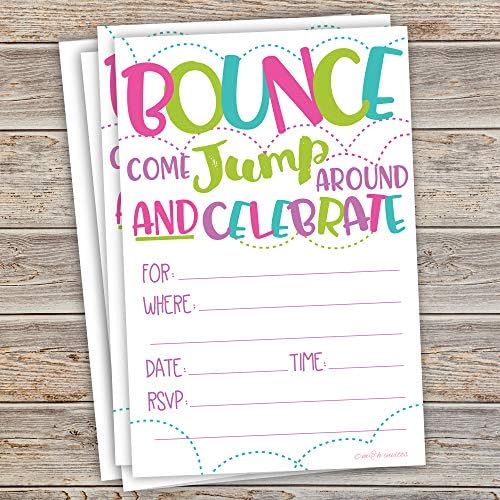 BOUNCE
COME Jump AROUND
AND CELEBRATE
FOR:
WHERE:
DATE: TIME:
RSVP:
©m&h invites